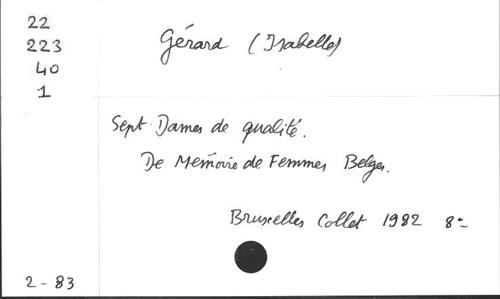 22
223
40
1
Gérard (Isabelle)
Sept Dames de qualité.
De Mémoire de Femmes Belges.
Bruxelles Collet 1982 8°
2-83